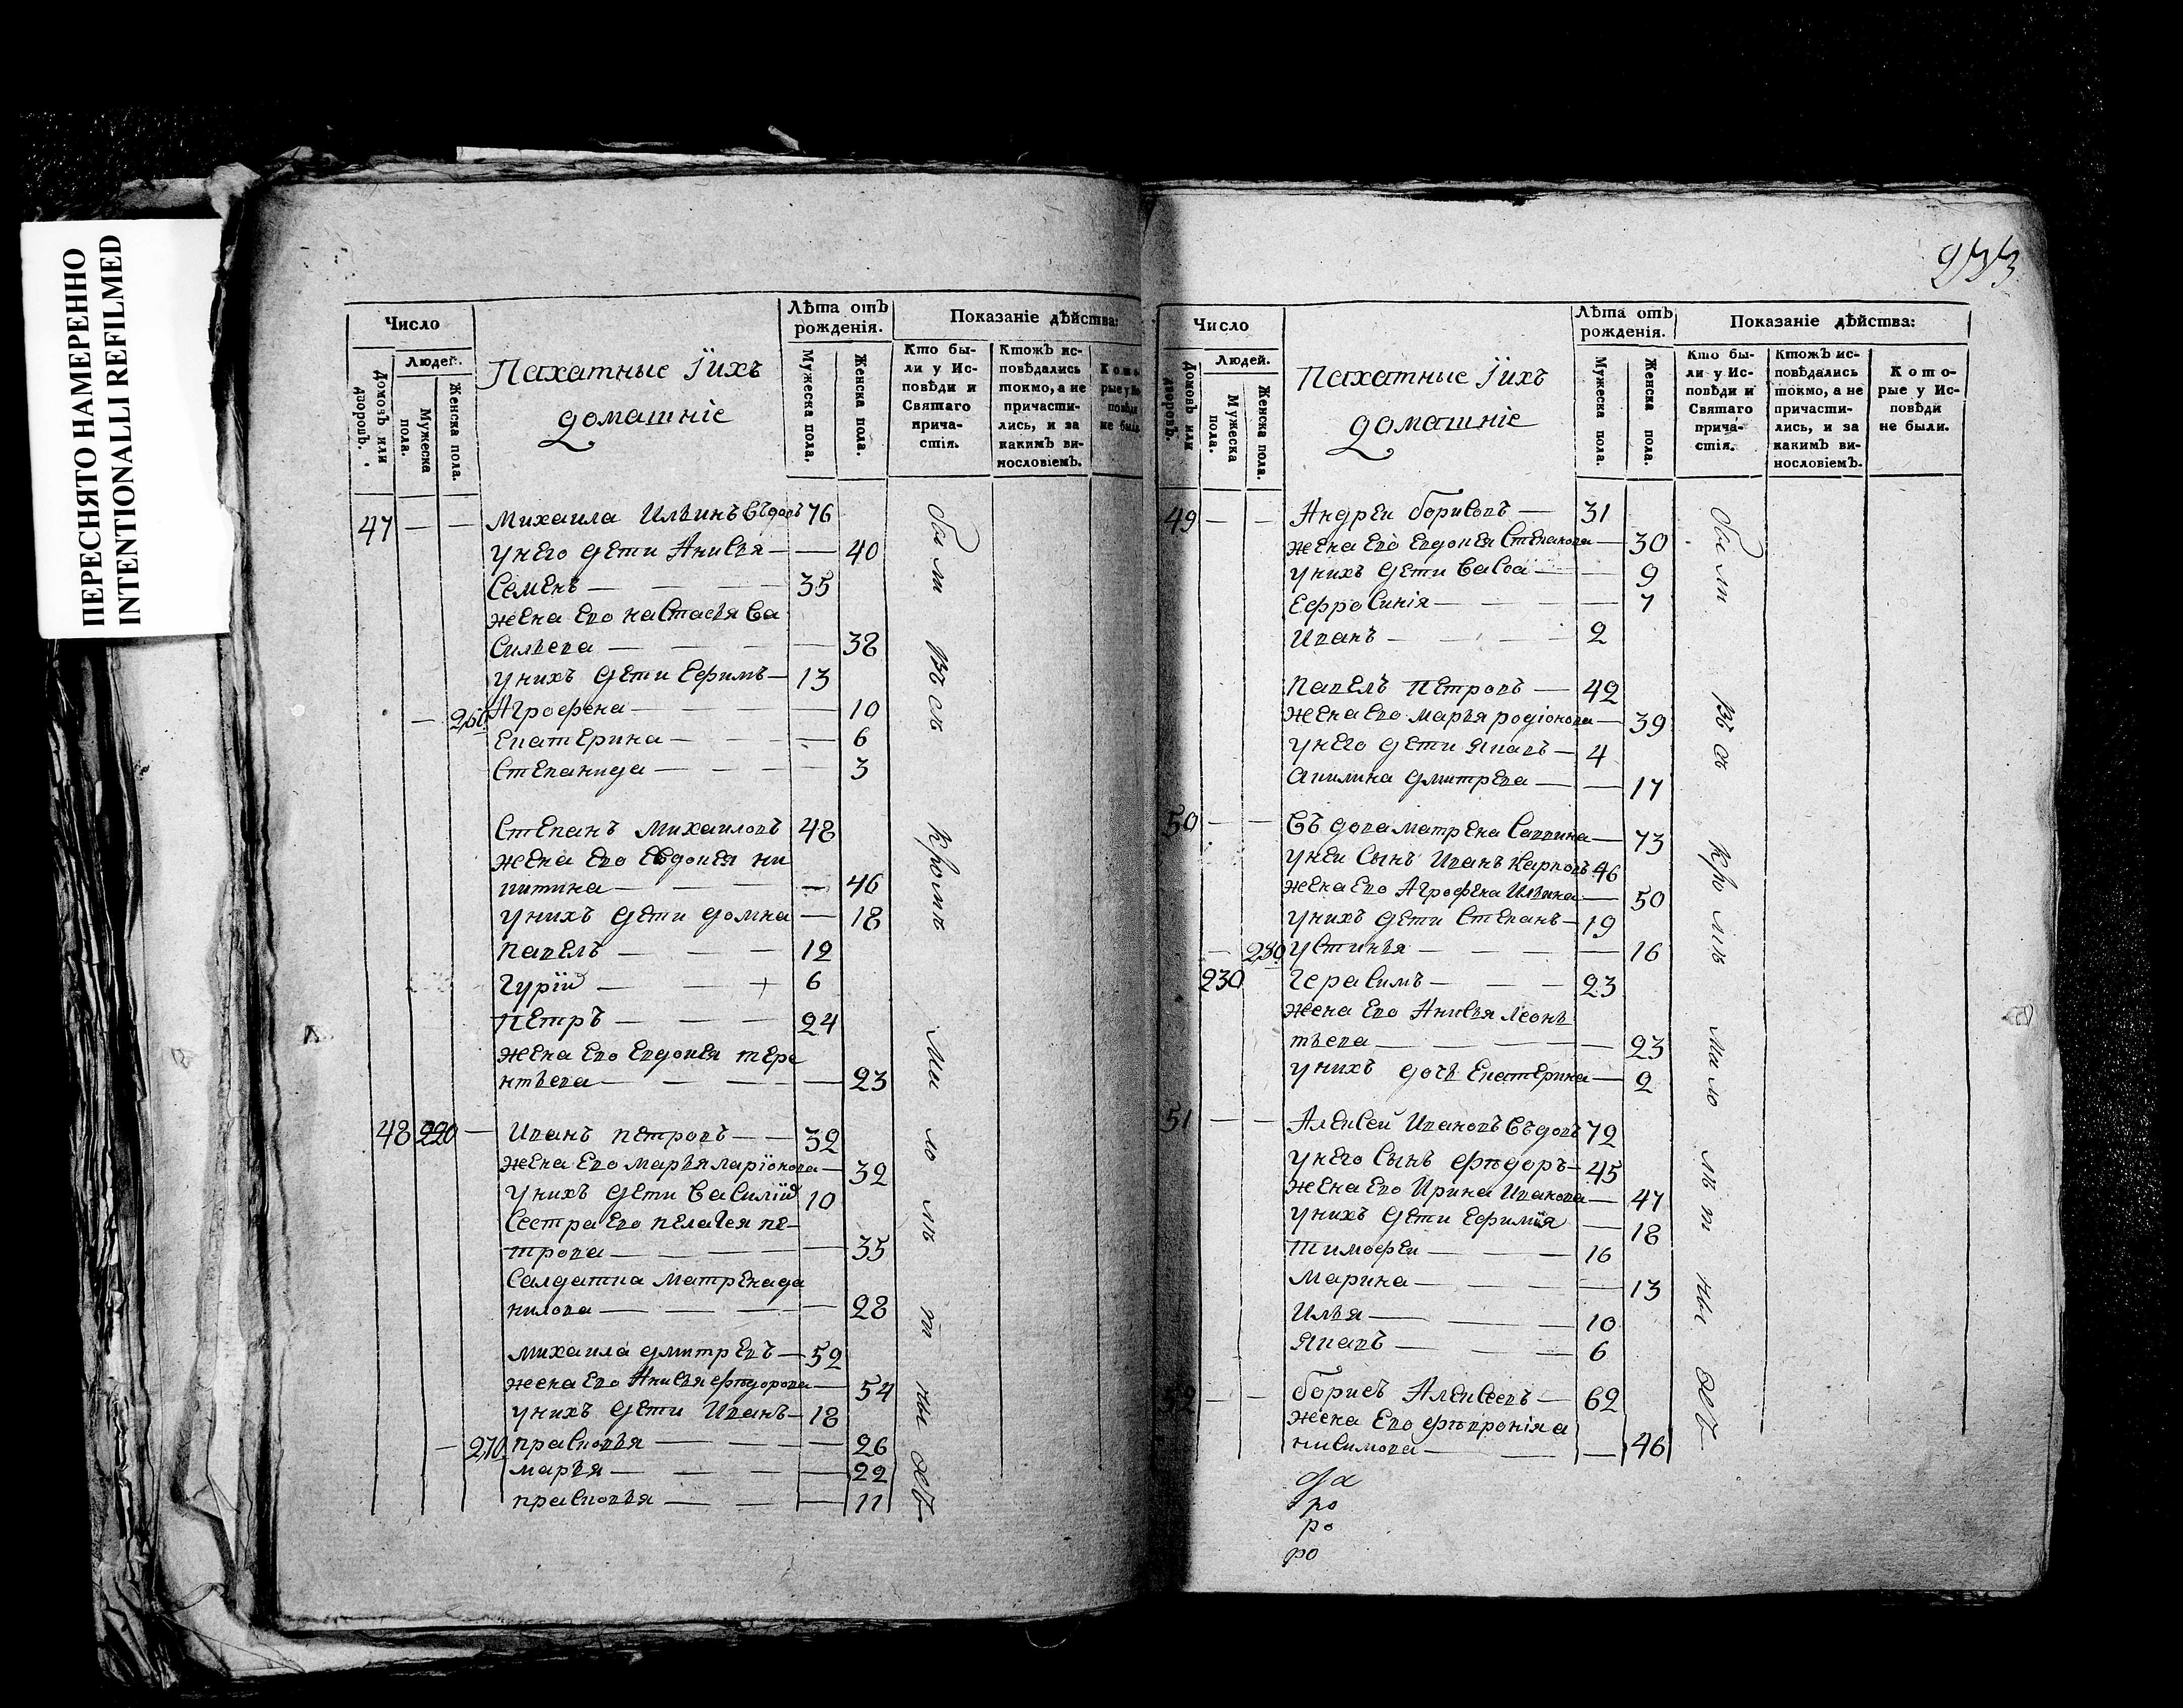 ПЕРЕСНЯТО НАМЕРЕННО
INTENTIONALLI REFILMED
Число
Людей.
Домовъ или дворовъ.
Мужеска пола.
Женска пола.
Пахатные Їихъ
домашніе
Лѣта отъ рожденія.
Мужеска пола.
Женска пола.
Показаніе дѣйства:
Кто были у Исповѣди и Святаго причастія.
Ктожъ исповѣдались токмо, а не причастились, и за какимъ винословіемъ.
47 — — Михаила Ильинъ Вдовъ 76
унего дети Анисья — — 40
Семенъ — — — 35
жена Его настасья Ва
сильева — — — 38
унихъ дети Ефимъ — 13
— 260 Агрофена — — — 10
Екатерина — — — 6
Степанида — — — 3
Степанъ Михаиловъ 48
жена Его Евдокея ни
китина — — — 46
унихъ дети домна — 18
Павелъ — — 12
Гурїй — — + 6
Петръ — — — 24
жена Его Евдокея тере
нтьева — — — 23
48 220 — Иванъ петровъ — — 32
жена Его марья ларїонова — 32
унихъ дети Василїй 10
Сестра Его пелагея пе-
трова — — — 35
Салдатка матрена да
нилова — — — 28
михаила дмитревъ — 52
жена Его Анисья федорова — 54
унихъ дети Иванъ — 18
— 270 прасковья — — — 26
марья — — — 22
прасковья — — — 11
были
Всѣ
Кромѣ
Мало
лѣ
т
ны
хъ
933
Число
Людей.
Домовъ или дворовъ.
Мужеска пола.
Женска пола.
Пахатные Їихъ
домашніе
Лѣта отъ рожденія.
Мужеска пола.
Женска пола.
Показаніе дѣйства:
Кто были у Исповѣди и Святаго причастія.
Ктожъ исповѣдались токмо, а не причастились, и за какимъ винословіемъ.
Которые у Исповѣди не были.
49 — — Андреи борисовъ — 31
жена Его Евдокея Степанова — 30
унихъ дети Васса — — 9
Ефросинія — — — 7
Иванъ — — — 2
Павелъ Петровъ — 42
жена Его марья родіонова — 39
унего дети Яковъ — 4
Акилина дмитрева — — 17
50 — — Въдова матрена Саввина — 73
унеи Сынъ Иванъ карповъ 46
жена Его Агрофена Ильина — 50
унихъ дети Степанъ — 19
— 280 устинья — — — 16
230 Герасимъ — — — 23
жена Его Анисья Леонь
тьева — — — 23
унихъ дочь Екатерина — 2
51 — — Алексей Ивановъ Въдовъ 72
унего Сынъ федоръ — 45
жена Его Ирина Иванова — 47
унихъ дети Ефимїя — 18
Тимофеи — — — 16
Марина — — — 13
Илья — — — 10
Яковъ — — — 6
52 — — борисъ Алексеевъ — 62
жена Его февронія а
нисимова — — — 46
были
Всѣ
Кро
мѣ
мало
лѣт
ны
хъ
ро
ро
ро